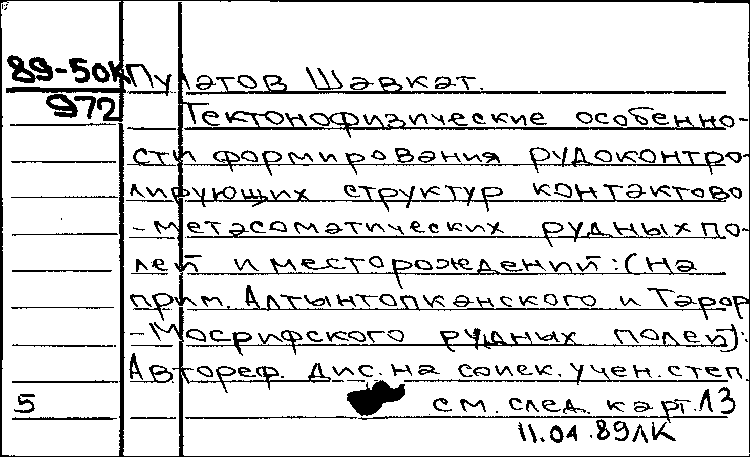 89-50К Пулатов Шавкат.
972 Тектонофизические особенно-
сти формирования рудоконтро-
лирующих структур контактово
-метасоматических рудных по-
лей и месторождений: (на
прим. Алтынтопканского и Тарор
-Мосрифского рудных полей):
Автореф. дис. на соиск. учен. степ.
5 см. след. карт. 13
11.04.89ЛК